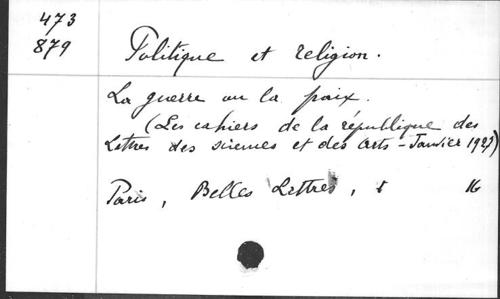 473
879
Politique et religion.
La guerre ou la paix.
(Les cahiers de la république des
Lettres des sciences et des arts - Janvier 1927)
Paris, Belles Lettres, 16